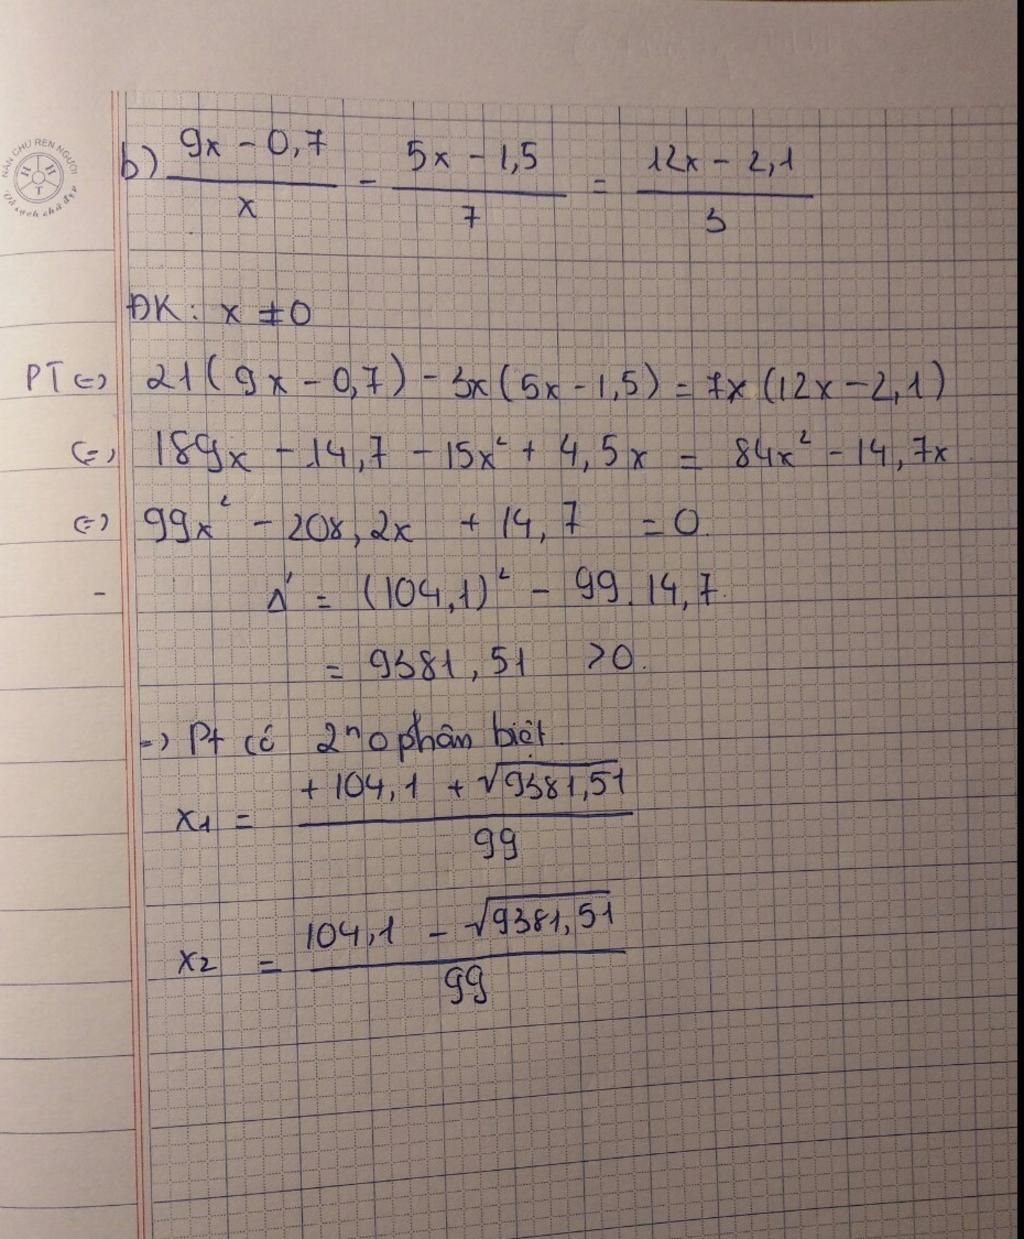 NÂN CHỮ RÈN NGƯỜI
H H T
Vở sạch chữ đẹp
b) (9x - 0,7)/x - (5x - 1,5)/7 = (12x - 2,1)/3
ĐK: x ≠ 0
PT (=) 21(9x - 0,7) - 3x(5x - 1,5) = 7x(12x - 2,1)
(=) 189x - 14,7 - 15x² + 4,5x = 84x² - 14,7x
(=) 99x² - 208,2x + 14,7 = 0.
- Δ' = (104,1)² - 99.14,7.
= 9381,51 >0.
=) Pt có 2nο phân biệt
x1 = (+104,1 + √9381,51)/99
x2 = (104,1 - √9381,51)/99